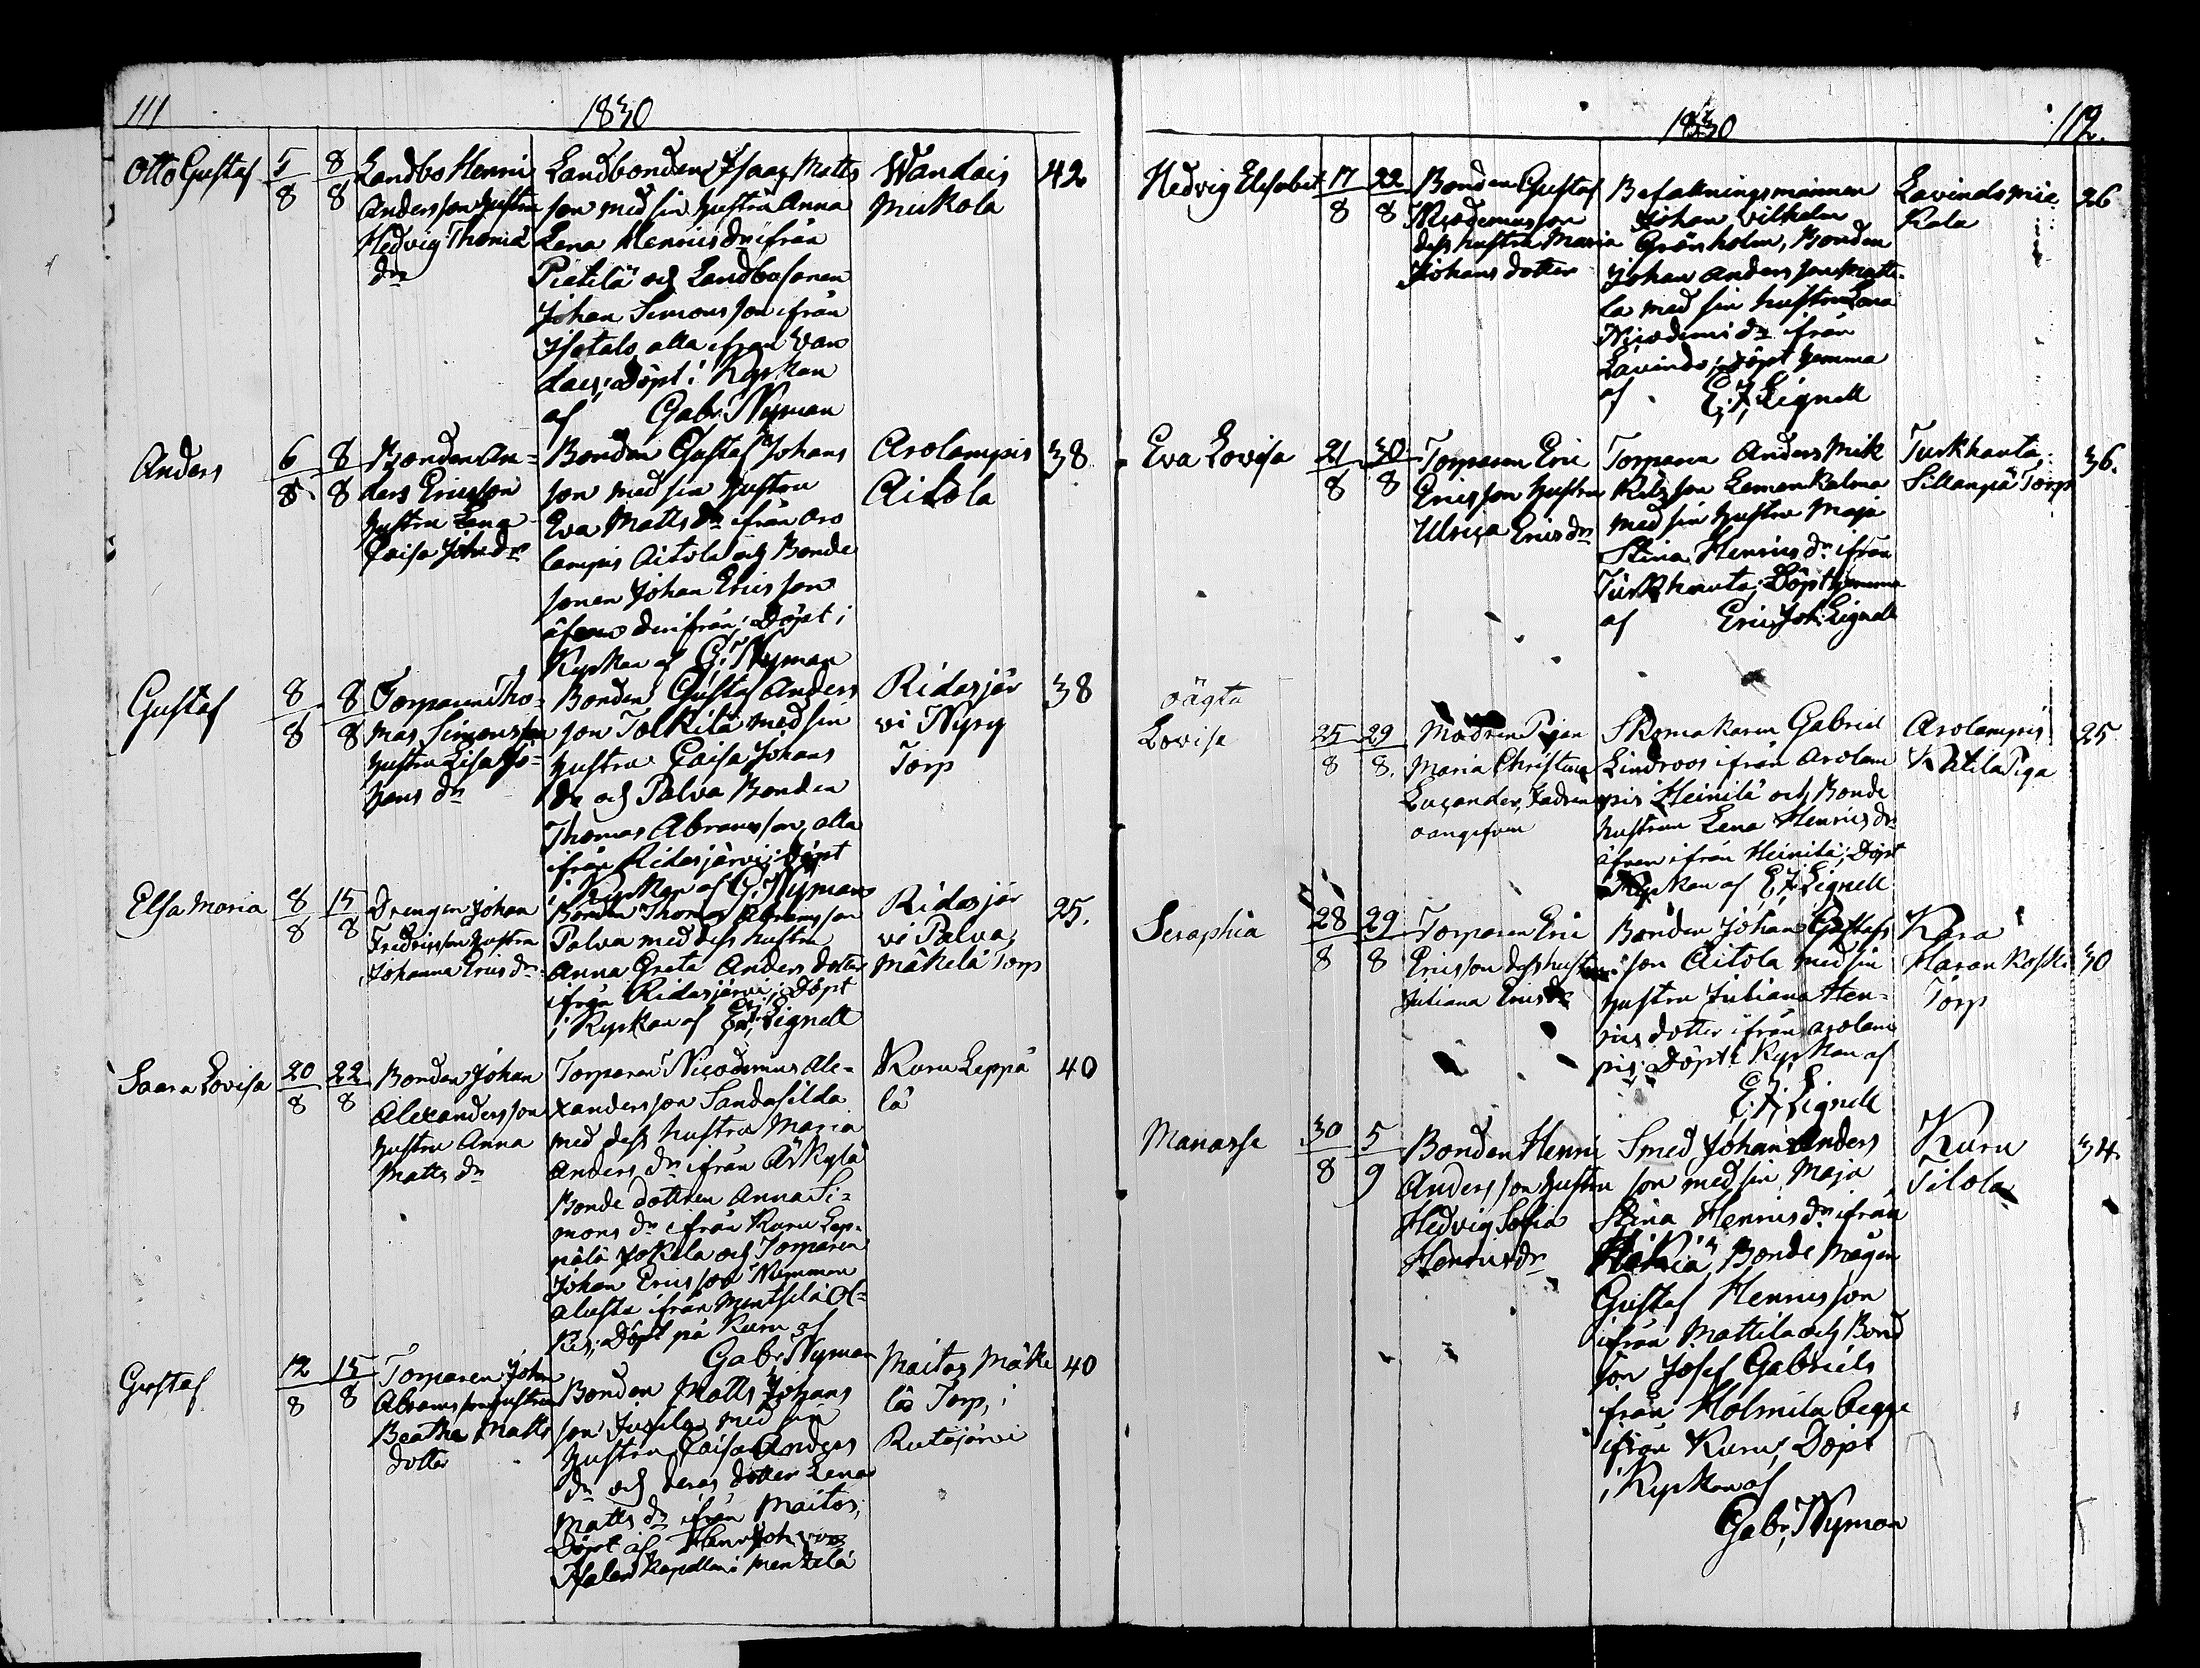 111
1830
Otto Gustaf
5/8
8/8
Landbo Henric
Andersson hustru
Hedvig Thomæ
dr
Landbonden Isaac Matts
son med sin hustru Anna
Lena Henricsdr ifrån
Pietilä och Landbosonen
Johan Simonsson ifrån
Isotalo, alla ifrån Van
dais; Döpt i Kyrkan
af Gabr. Nyman
Wandais
Mukola
42
Anders
6/8
8/8
Bonden An-
ders Ericsson
hustru Lena
Caisa Joh.dr
Bonden Gustaf Johans
son med sin hustru
Eva Matts dr ifrån Aro
lampis Aitola och Bonde
sonen Johan Ericsson
äfven derifrån; Döpt i
Kyrkan af G. Nyman
Arolampis
Aitola
38
Gustaf
8/8
8/8
Torparen Tho-
mas Simonsson
hustru Lisa Jo-
hans dr
Bonden Gustaf Anders
son Tolkila med sin
hustru Caisa Johans
dr och Palva Bonden
Thomas Abramsson, alla
ifrån Ridasjärvi; Döpt
i Kyrkan af G. Nyman
Ridasjär
vi Nyry
Torp
38
Elsa Maria
8/8
15/8
Drengen Johan
Fredricsson hustru
Johanna Erics dr
Bonden Thomas Abramsson
Palva med dess hustru
Anna Greta Anders dotter
ifrån Ridasjärvi; Döpt
i Kyrkan af E.J. Lignell
Ridasjär
vi Palva,
Mäkelä Torp
25.
Saara Lovisa
20/8
22/8
Bonden Johan
Alexandersson
hustru Anna
Matts dr
Torparen Nicodemus Ale-
xandersson Sandasilda
med dess hustru Maria
Anders dr ifrån
Bonde dottren Anna Si-
mons dr ifrån Kuru Lep-
pälä Jokela och Torparen
Johan Ericsson
alusta ifrån Mentselä Ol-
kis; Döpt på Kuru af
Gabr. Nyman
Kuru Leppä
lä
40
Gustaf
12/8
15/8
Torparen Johan
Abramsson hustru
Beatha Matts
dotter
Bonden Matts Johans
son Jusila med sin
hustru Caisa Anders
dr och deras dotter Lena
Matts dr ifrån Maitos;
Döpt af Henr Joh
Kapellan i Mentzelä
Maitos Mäke
lä Torp, i
Rutajärvi
40
1830
112.
Hedvig Elisabet
17/8
22/8
Bonden Gustaf
Nicodemusson
dess hustru Maria
Johans dotter
Befallningsmannen
Johan Vilhelm
Grönholm, Bonden
Johan Andersson Matti-
la med sin hustru Lena
Nicodemi dr ifrån
Lavinds; Döpt hemma
af E.J. Lignell
Lavinds Mie
Kala
26
Eva Lovisa
21/8
30/8
Torparen Eric
Ericsson hustru
Ulrica Erics dr
Torparen Anders Mik
kelsson Lemenkalma
med sin hustru Maja
Stina Henrics dr ifrån
Turkhauta; Döpt hemma
af Eric Joh. Lignell
Turkhauta,
Sillanpä Torp
36.
oägta
Lovisa
25/8
29/8.
Modren Pigan
Maria Christina
Lucander, Fadren
oangifven
Skomakaren Gabriel
Lindroos ifrån Arolam
pis Heinilä och Bonde
hustrun Lena Henrics dr
äfven ifrån Heinilä; Döpt
Kyrkan af E.J. Lignell
Arolampis
Katila Piga
25
Seraphia
28/8
29/8
Torparen Eric
Ericsson dess hustru
Juliana Erics dr
Bonden Johan Gustafs
son Aitola med sin
hustru Juliana Hen-
rics dotter ifrån Arolam
pis; Döpt i Kyrkan af
E.J. Lignell
Kara
Haran Koski
Torp
30
Manasse
30/8
5/9
Bonden Henric
Andersson hustru
Hedvig Sofia
Henricsdr
Smed Johan Anders
son med sin Maja
Stina Henrics dr ifrån
Bonde Mågen
Gustaf Henricsson
ifrån Mattila och Bond
son Josef Gabriels
från Holmila begge
ifrån Kuru, Döpt
i Kyrkan af
Gabr. Nyman
Kuru
Tilola
34.